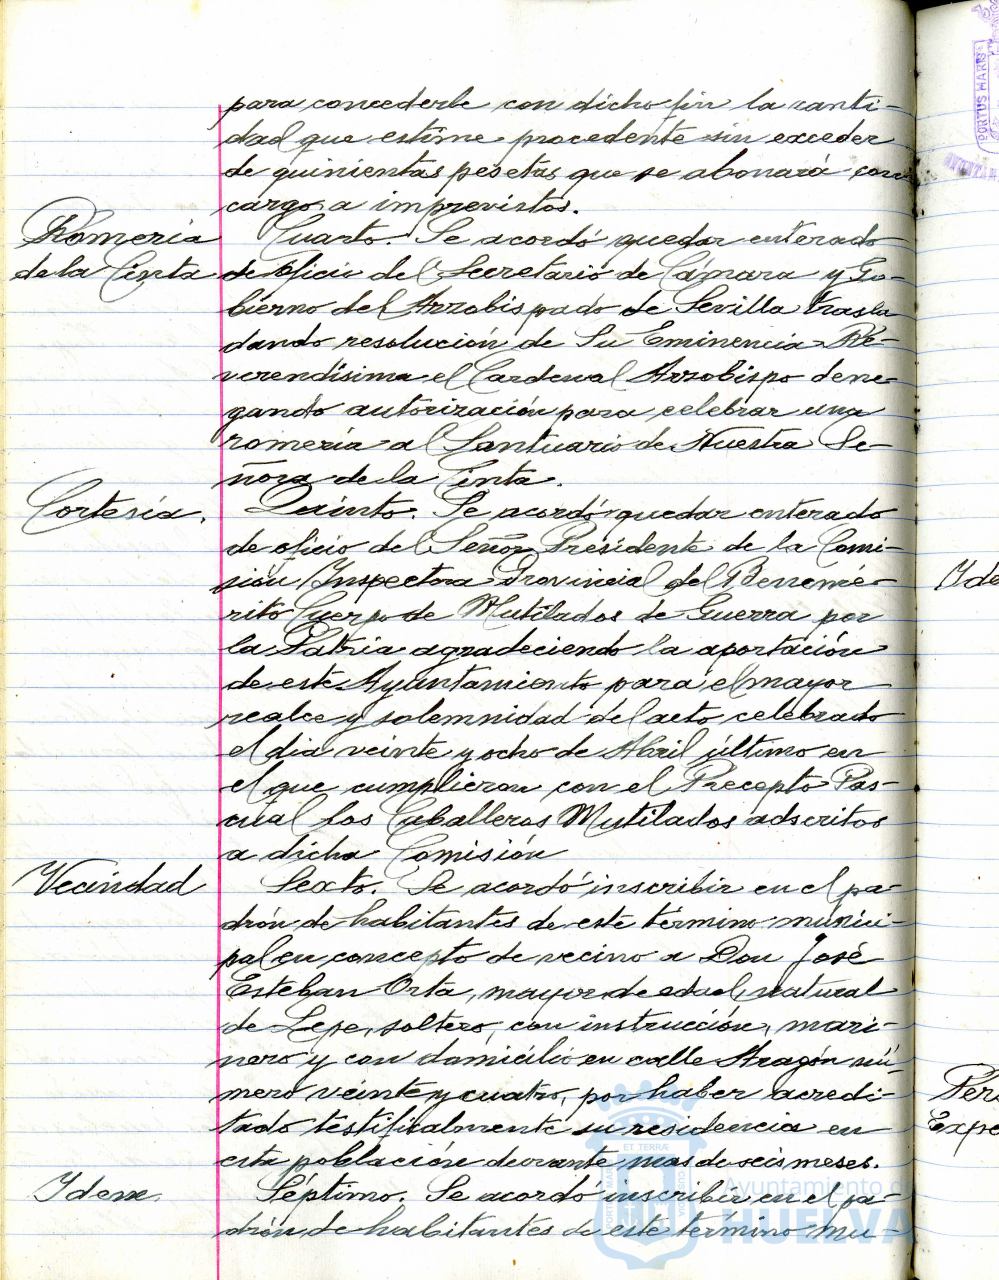 para concederle con dicho fin la canti-
dad que estime procedente sin exceder
de quinientas pesetas que se abonará con
cargo a imprevistos.
Romería
de la Cinta
Cuarto. Se acordó quedar enterado
de oficio del Secretario de Cámara y Go-
bierno del Arzobispado de Sevilla trasla
dando resolución de Su Eminencia Re-
verendísima el Cardenal Arzobispo dene-
gando autorización para celebrar una
romería al Santuario de Nuestra Se-
ñora de la Cinta.
Cortesía.
Quinto. Se acordó quedar enterado
de oficio del Señor Presidente de la Comi-
sión Inspectora Provincial del Benemé-
rito Cuerpo de Mutilados de Guerra por
la Patria agradeciendo la aportación
de este Ayuntamiento para el mayor
realce y solemnidad del acto celebrado
el dia veinte y ocho de Abril último en
el que cumplieron con el Precepto Pas-
cual los Caballeros Mutilados adscritos
a dicha Comisión
Vecindad
Sexto. Se acordó inscribir en el pa-
drón de habitantes de este término munici-
pal en concepto de vecino a Don José
Esteban Orta, mayor de edad, natural
de Lepe, soltero, con instrucción, mari-
nero y con domicilio en calle Aragón nú-
mero veinte y cuatro, por haber acredi-
tado testificalmente su residencia en
esta población durante mas de seis meses.
Idem.
Séptimo. Se acordó inscribir en el pa-
drón de habitantes de este término mu-
PORTUS MARIS
Ide
Pers
Expe
ET TERRÆ
Ayuntamiento de
HUELVA